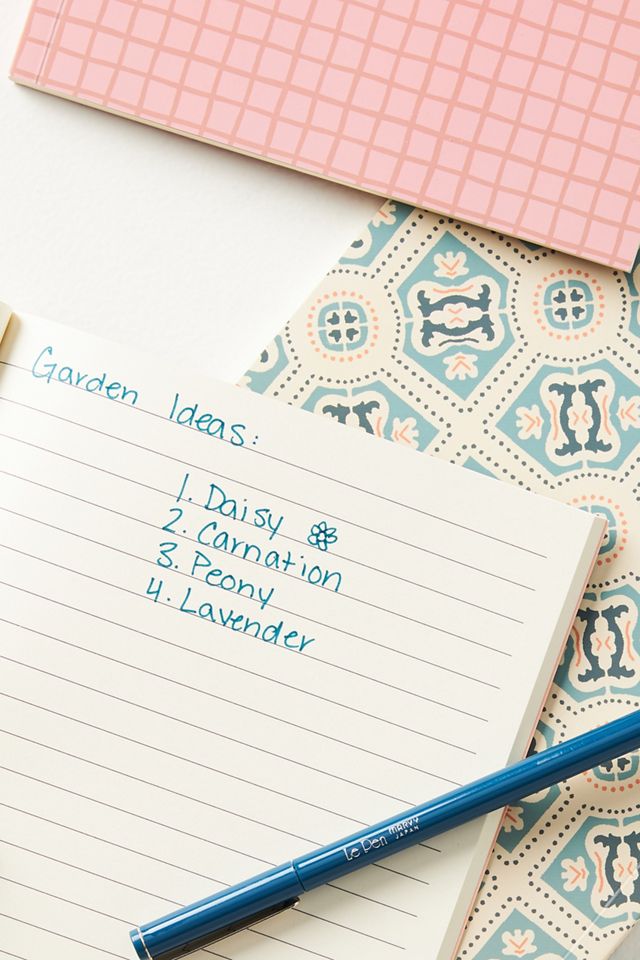 Garden Ideas:
1. Daisy
2. Carnation
3. Peony
4. Lavender
Le Pen MARVY JAPAN